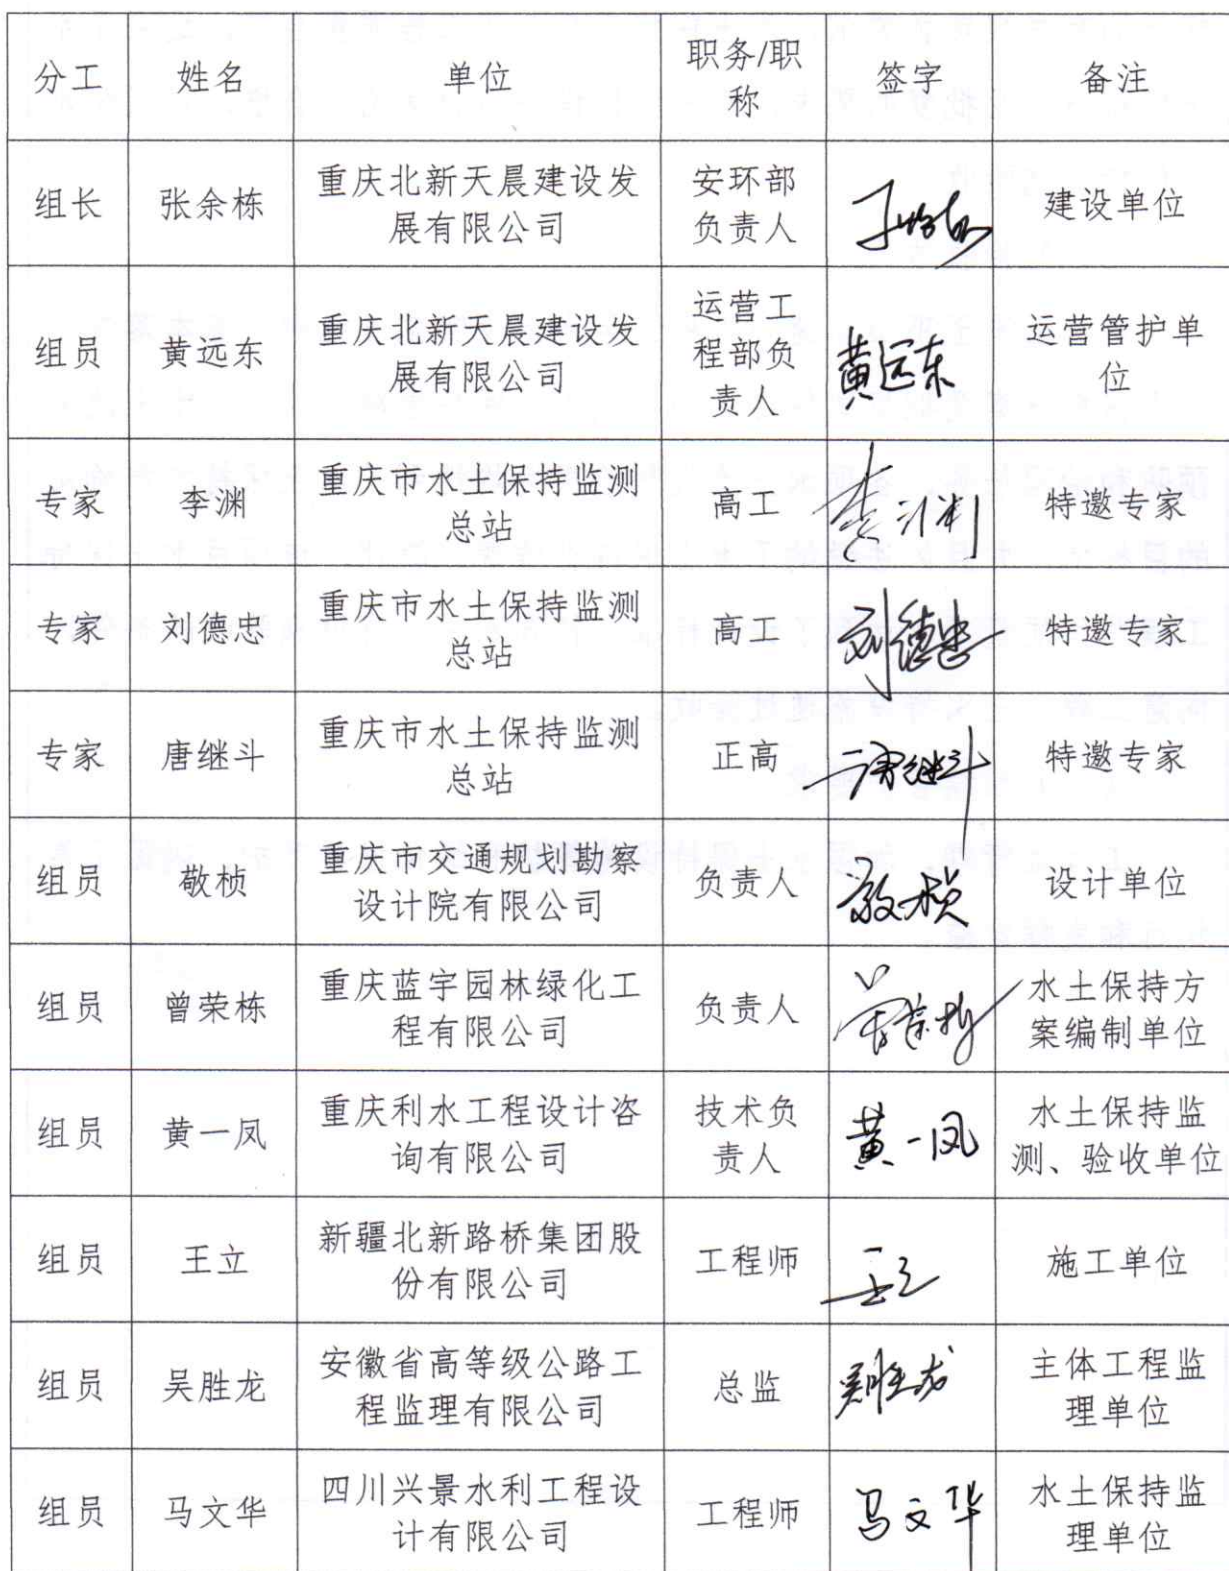 分工 姓名 单位 职务/职称 签字 备注
组长 张余栋 重庆北新天晨建设发展有限公司 安环部负责人 建设单位
组员 黄远东 重庆北新天晨建设发展有限公司 运营工程部负责人 黄远东 运营管护单位
专家 李渊 重庆市水土保持监测总站 高工 李渊 特邀专家
专家 刘德忠 重庆市水土保持监测总站 高工 刘德忠 特邀专家
专家 唐继斗 重庆市水土保持监测总站 正高 唐继斗 特邀专家
组员 敬桢 重庆市交通规划勘察设计院有限公司 负责人 敬桢 设计单位
组员 曾荣栋 重庆蓝宇园林绿化工程有限公司 负责人 水土保持方案编制单位
组员 黄一凤 重庆利水工程设计咨询有限公司 技术负责人 黄一凤 水土保持监测、验收单位
组员 王立 新疆北新路桥集团股份有限公司 工程师 王立 施工单位
组员 吴胜龙 安徽省高等级公路工程监理有限公司 总监 吴胜龙 主体工程监理单位
组员 马文华 四川兴景水利工程设计有限公司 工程师 马文华 水土保持监理单位